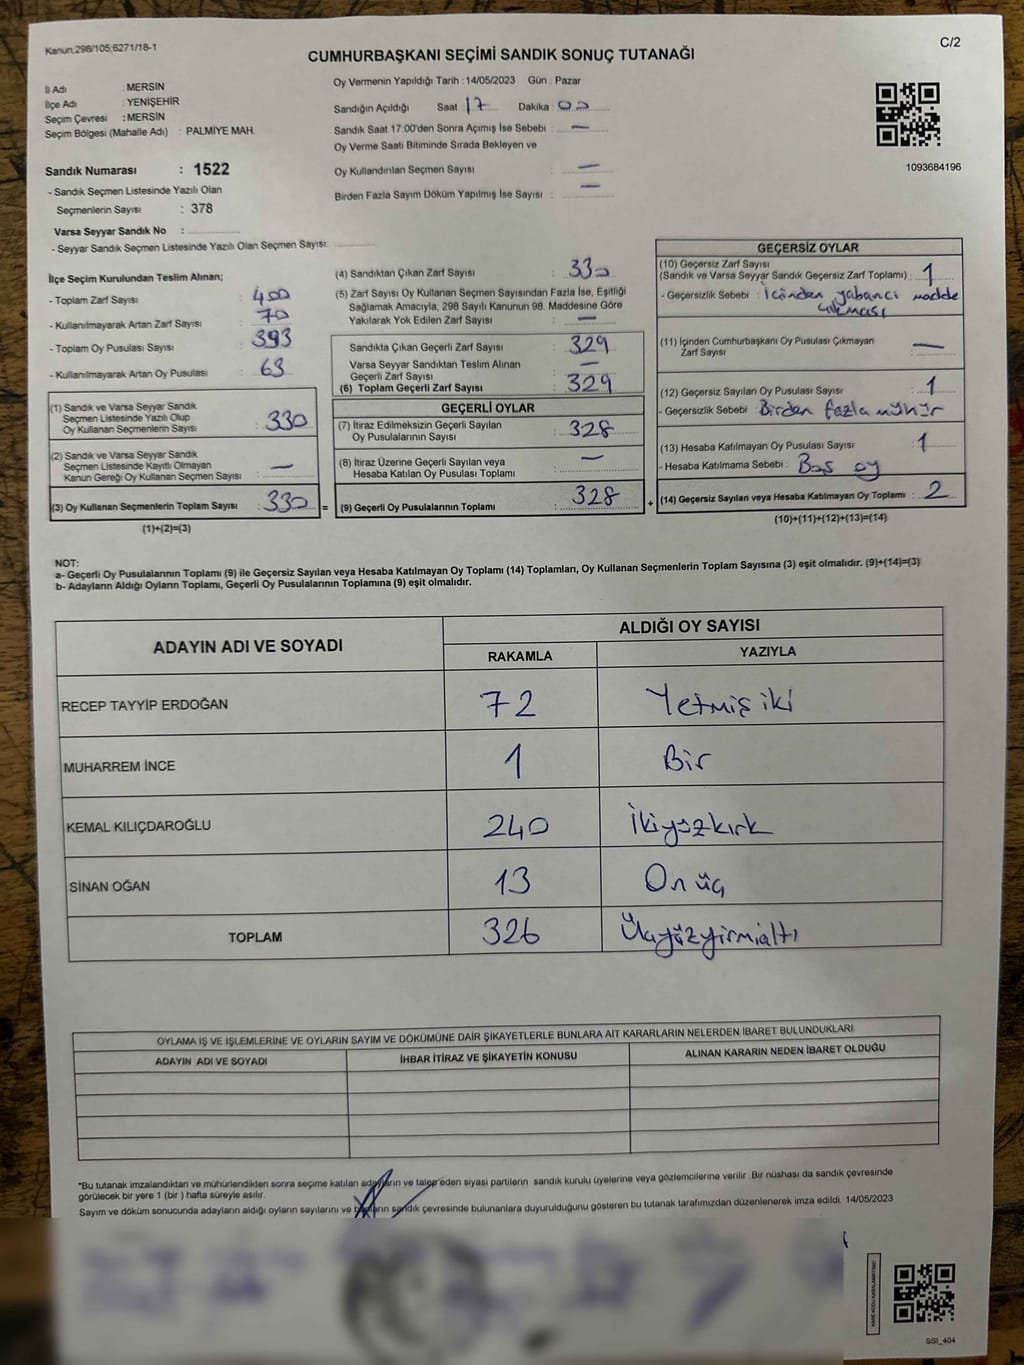 Kanun,298/105;6271/18-1
C/2
CUMHURBAŞKANI SEÇİMİ SANDIK SONUÇ TUTANAĞI
İl Adı : MERSİN
İlçe Adı : YENİŞEHİR
Seçim Çevresi : MERSİN
Seçim Bölgesi (Mahalle Adı) : PALMİYE MAH.
Oy Vermenin Yapıldığı Tarih : 14/05/2023 Gün : Pazar
Sandığın Açıldığı Saat : 17 Dakika : 00
Sandık Saat 17:00'den Sonra Açımış İse Sebebi : —
Oy Verme Saati Bitiminde Sırada Bekleyen ve
Oy Kullandırılan Seçmen Sayısı : —
Birden Fazla Sayım Döküm Yapılmış İse Sayısı : —
1093684196
Sandık Numarası : 1522
- Sandık Seçmen Listesinde Yazılı Olan
Seçmenlerin Sayısı : 378
Varsa Seyyar Sandık No :
- Seyyar Sandık Seçmen Listesinde Yazılı Olan Seçmen Sayısı:
İlçe Seçim Kurulundan Teslim Alınan;
- Toplam Zarf Sayısı : 400
- Kullanılmayarak Artan Zarf Sayısı : 70
- Toplam Oy Pusulası Sayısı : 393
- Kullanılmayarak Artan Oy Pusulası : 63
(1) Sandık ve Varsa Seyyar Sandık
Seçmen Listesinde Yazılı Olup
Oy Kullanan Seçmenlerin Sayısı : 330
(2) Sandık ve Varsa Seyyar Sandık
Seçmen Listesinde Kayıtlı Olmayan
Kanun Gereği Oy Kullanan Seçmen Sayısı : —
(3) Oy Kullanan Seçmenlerin Toplam Sayısı : 330 =
(1)+(2)=(3)
(4) Sandıktan Çıkan Zarf Sayısı : 330
(5) Zarf Sayısı Oy Kullanan Seçmen Sayısından Fazla İse, Eşitliği
Sağlamak Amacıyla, 298 Sayılı Kanunun 98. Maddesine Göre
Yakılarak Yok Edilen Zarf Sayısı : —
Sandıkta Çıkan Geçerli Zarf Sayısı : 329
Varsa Seyyar Sandıktan Teslim Alınan
Geçerli Zarf Sayısı : —
(6) Toplam Geçerli Zarf Sayısı : 329
GEÇERLİ OYLAR
(7) İtiraz Edilmeksizin Geçerli Sayılan
Oy Pusulalarının Sayısı : 328
(8) İtiraz Üzerine Geçerli Sayılan veya
Hesaba Katılan Oy Pusulası Toplamı : —
(9) Geçerli Oy Pusulalarının Toplamı : 328 +
GEÇERSİZ OYLAR
(10) Geçersiz Zarf Sayısı
(Sandık ve Varsa Seyyar Sandık Geçersiz Zarf Toplamı) : 1
- Geçersizlik Sebebi : İçinden yabancı madde
çıkması
(11) İçinden Cumhurbaşkanı Oy Pusulası Çıkmayan
Zarf Sayısı : —
(12) Geçersiz Sayılan Oy Pusulası Sayısı : 1
- Geçersizlik Sebebi : Birden fazla mühür
(13) Hesaba Katılmayan Oy Pusulası Sayısı : 1
- Hesaba Katılmama Sebebi : Boş oy
(14) Geçersiz Sayılan veya Hesaba Katılmayan Oy Toplamı : 2
(10)+(11)+(12)+(13)=(14)
NOT:
a- Geçerli Oy Pusulalarının Toplamı (9) ile Geçersiz Sayılan veya Hesaba Katılmayan Oy Toplamı (14) Toplamları, Oy Kullanan Seçmenlerin Toplam Sayısına (3) eşit olmalıdır. (9)+(14)=(3)
b- Adayların Aldığı Oyların Toplamı, Geçerli Oy Pusulalarının Toplamına (9) eşit olmalıdır.
ADAYIN ADI VE SOYADI
ALDIĞI OY SAYISI
RAKAMLA YAZIYLA
RECEP TAYYİP ERDOĞAN 72 Yetmiş iki
MUHARREM İNCE 1 Bir
KEMAL KILIÇDAROĞLU 240 İkiyüzkırk
SİNAN OĞAN 13 On üç
TOPLAM 326 Üçyüzyirmialtı
OYLAMA İŞ VE İŞLEMLERİNE VE OYLARIN SAYIM VE DÖKÜMÜNE DAİR ŞİKAYETLERLE BUNLARA AİT KARARLARIN NELERDEN İBARET BULUNDUKLARI
ADAYIN ADI VE SOYADI İHBAR İTİRAZ VE ŞİKAYETİN KONUSU ALINAN KARARIN NEDEN İBARET OLDUĞU
*Bu tutanak imzalandıktan ve mühürlendikten sonra seçime katılan adayların ve talep eden siyasi partilerin sandık kurulu üyelerine veya gözlemcilerine verilir. Bir nüshası da sandık çevresinde
görülecek bir yere 1 (bir) hafta süreyle asılır.
Sayım ve döküm sonucunda adayların aldığı oyların sayılarını ve bunların sandık çevresinde bulunanlara duyurulduğunu gösteren bu tutanak tarafımızdan düzenlenerek imza edildi. 14/05/2023
SSI_404